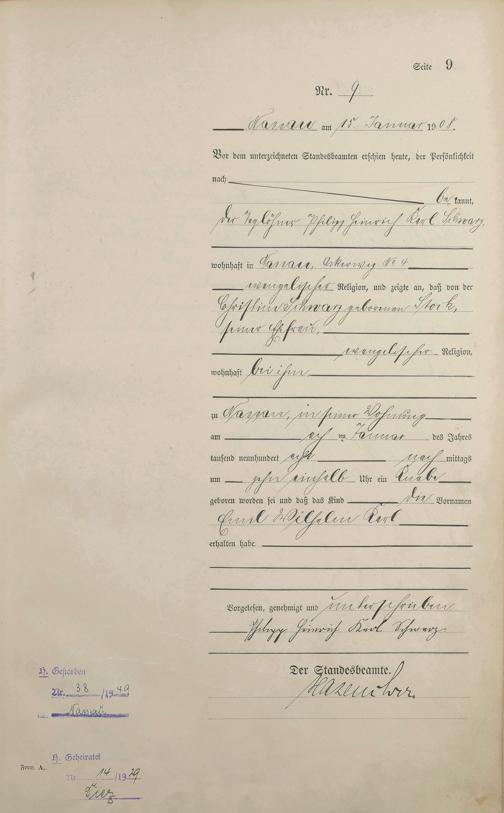 Seite 9
Nr. 9
Nassau am 15. Januar 1908.
Vor dem unterzeichneten Standesbeamten erschien heute, der Persönlichkeit
nach
be kannt,
der Taglöhner Philipp Heinrich Karl Schwarz,
wohnhaft in Nassau, No 4
evangelischer Religion, und zeigte an, daß von der
Christine Schwarz geborenen Stork,
seiner Ehefrau,
evangelischer Religion,
wohnhaft bei ihm
zu Nassau, in seiner Wohnung
am acht ten Januar des Jahres
tausend neunhundert acht nach mittags
um zehn einhalb Uhr ein Knabe
geboren worden sei und daß das Kind die Vornamen
Emil Wilhelm Karl
erhalten habe.
Vorgelesen, genehmigt und unterschrieben
Philipp Heinrich Karl Schwarz
Der Standesbeamte.
H. Gestorben
Nr. 38 /1949
Nassau
H. Geheiratet
Nr. 14 /1929
Diez
Form. A.